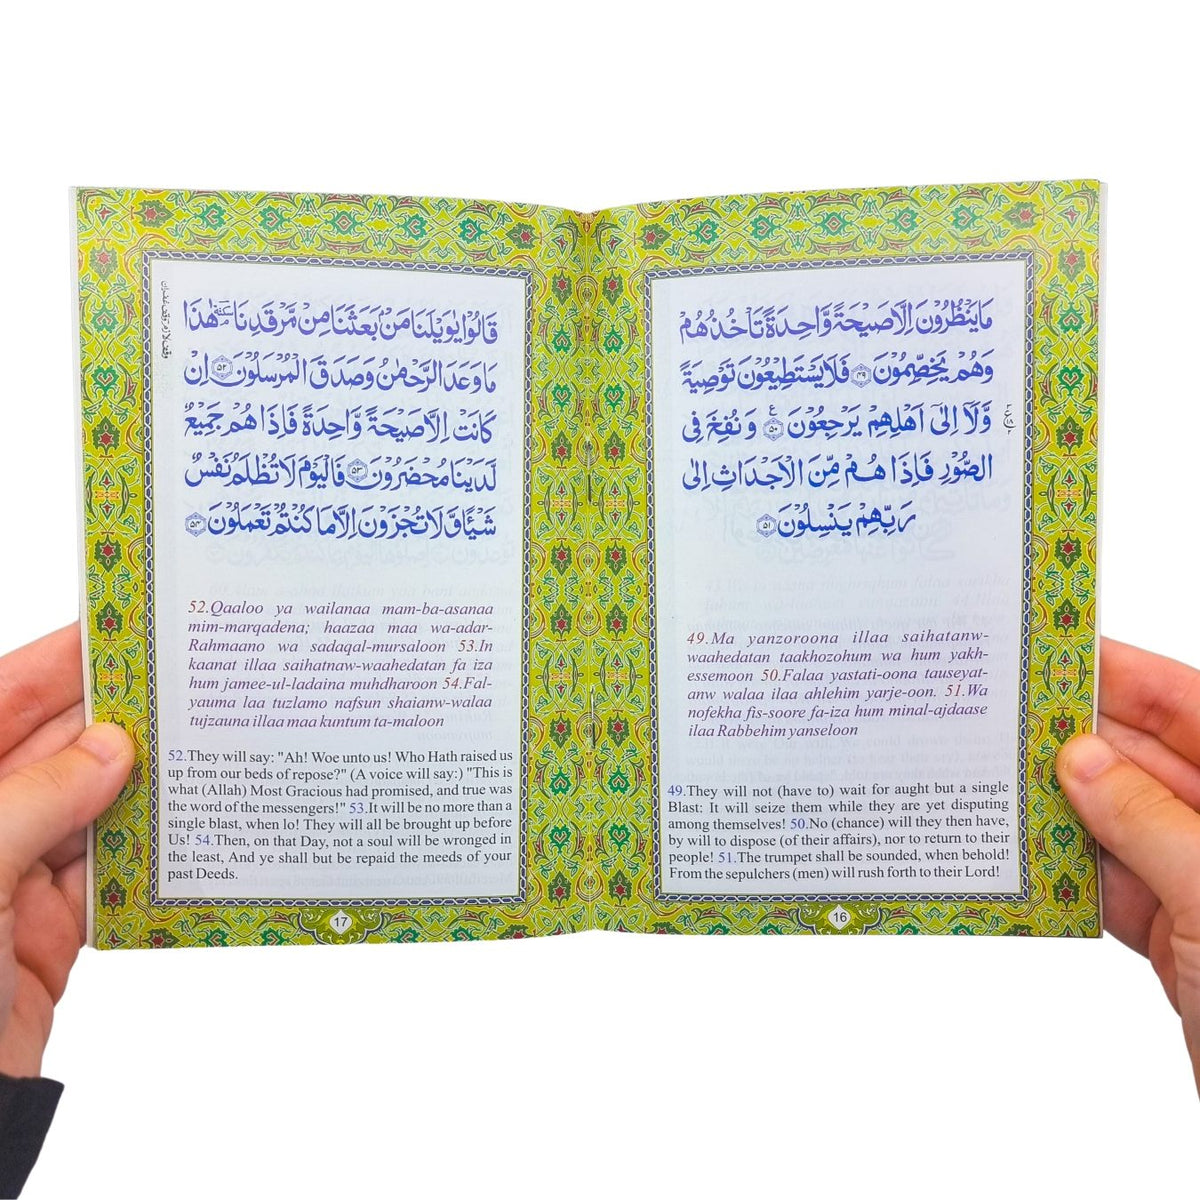 مَا يَنْظُرُوْنَ اِلَّا صَيْحَةً وَّاحِدَةً تَاْخُذُهُمْ
وَهُمْ يَخِصِّمُوْنَ ۴۹ فَلَا يَسْتَطِيْعُوْنَ تَوْصِيَةً
وَّلَآ اِلٰٓى اَهْلِهِمْ يَرْجِعُوْنَ ۵۰ وَنُفِخَ فِى
الصُّوْرِ فَاِذَا هُمْ مِّنَ الْاَجْدَاثِ اِلٰى
رَبِّهِمْ يَنْسِلُوْنَ ۵۱
49.Ma yanzoroona illaa saihatanw-
waahedatan taakhozohum wa hum yakh-
essemoon 50.Falaa yastati-oona tauseyat-
anw walaa ilaa ahlehim yarje-oon. 51.Wa
nofekha fis-soore fa-iza hum minal-ajdaase
ilaa Rabbehim yanseloon
49.They will not (have to) wait for aught but a single
Blast: It will seize them while they are yet disputing
among themselves! 50.No (chance) will they then have,
by will to dispose (of their affairs), nor to return to their
people! 51.The trumpet shall be sounded, when behold!
From the sepulchers (men) will rush forth to their Lord!
16
قَالُوْا يٰوَيْلَنَا مَنْۢ بَعَثَنَا مِنْ مَّرْقَدِنَا هٰذَا
مَا وَعَدَ الرَّحْمٰنُ وَصَدَقَ الْمُرْسَلُوْنَ ۵۲ اِنْ
كَانَتْ اِلَّا صَيْحَةً وَّاحِدَةً فَاِذَا هُمْ جَمِيْعٌ
لَّدَيْنَا مُحْضَرُوْنَ ۵۳ فَالْيَوْمَ لَا تُظْلَمُ نَفْسٌ
شَيْـًٔا وَّلَا تُجْزَوْنَ اِلَّا مَا كُنْتُمْ تَعْمَلُوْنَ ۵۴
52.Qaaloo ya wailanaa mam-ba-asanaa
mim-marqadena; haazaa maa wa-adar-
Rahmaano wa sadaqal-mursaloon 53.In
kaanat illaa saihatnaw-waahedatan fa iza
hum jamee-ul-ladaina muhdharoon 54.Fal-
yauma laa tuzlamo nafsun shaianw-walaa
tujzauna illaa maa kuntum ta-maloon
52.They will say: "Ah! Woe unto us! Who Hath raised us
up from our beds of repose?" (A voice will say:) "This is
what (Allah) Most Gracious had promised, and true was
the word of the messengers!" 53.It will be no more than a
single blast, when lo! They will all be brought up before
Us! 54.Then, on that Day, not a soul will be wronged in
the least, And ye shall but be repaid the meeds of your
past Deeds.
17